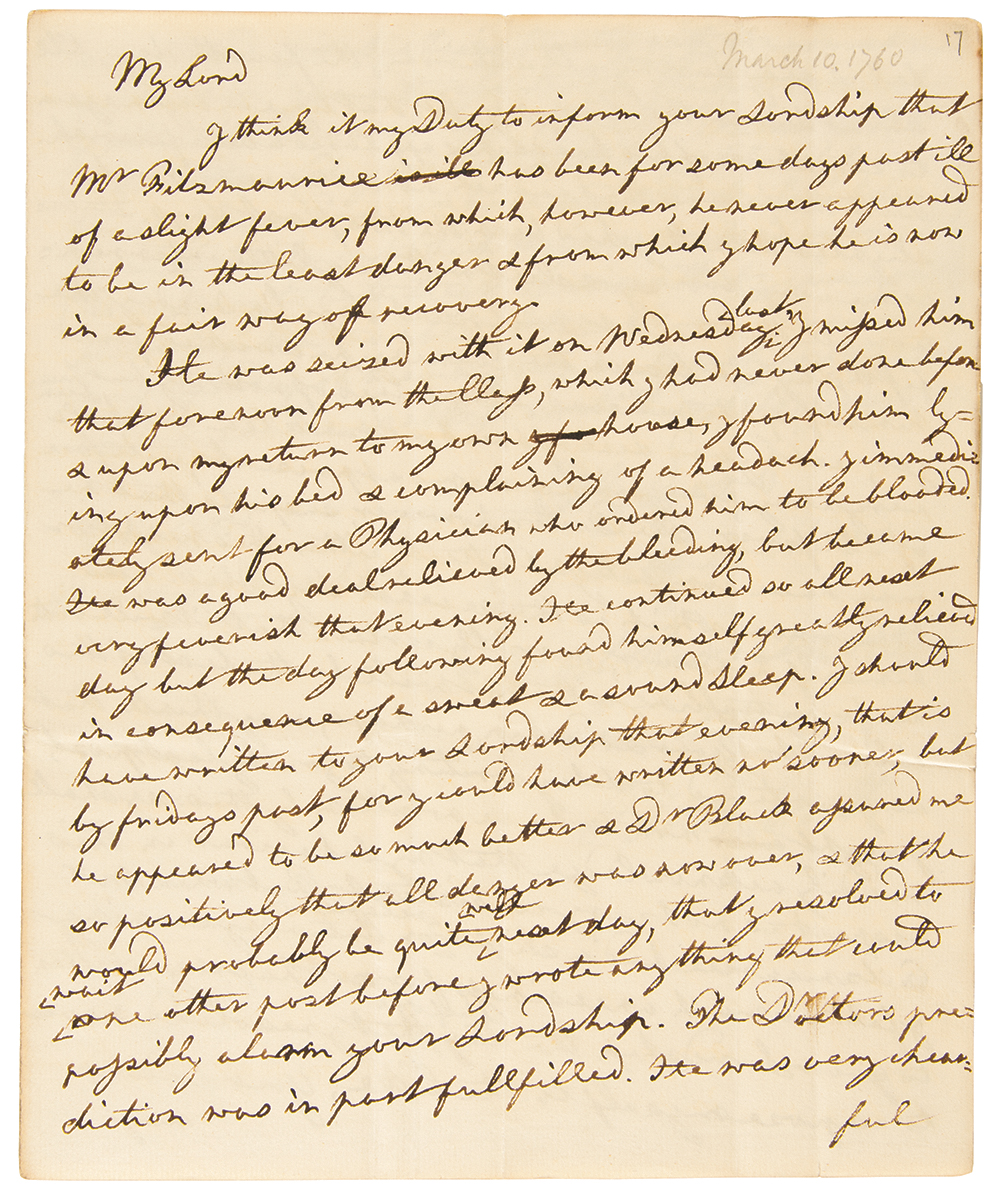 17
March 10. 1760
My Lord
I think it my Duty to inform your Lordship that
Mr Fitzmaurice is ill has been for some days past ill
of a slight fever, from which, however, he never appeared
to be in the least danger & from which I hope he is now
in a fair way of recovery.
He was seized with it on Wednesday last. I missed him
that forenoon from the Class, which I had never done before
& upon my return to my own house, I found him ly=
ing upon his bed & complaining of a headach. I immedi=
ately sent for a Physician who ordered him to be blooded.
He was a good deal relieved by the bleeding, but became
very feverish that evening. He continued so all next
day but the day following found himself greatly relieved
in consequence of a sweat & a sound sleep. I should
have written to your Lordship that evening, that is
by fridays post, for I could have written no sooner, but
he appeared to be so much better & Dr Black assured me
so positively that all danger was now over, & that he
would probably be quite well next day, that I resolved to
wait one other post before I wrote any thing that could
possibly alarm your Lordship. The Doctors pre=
diction was in part fullfilled. He was very chear=
ful